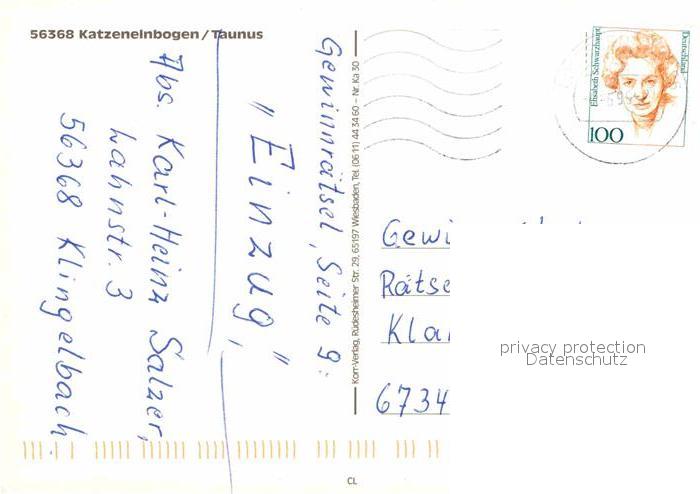 56368 Katzenelnbogen / Taunus
Gewinnrätsel, Seite 9:
„Einzug,“
Abs. Karl-Heinz Salzer,
Lahnstr. 3
56368 Klingelbach
Kom-Verlag, Rüdesheimer Str. 29, 65197 Wiesbaden, Tel. (06 11) 44 34 60 – Nr. Ka 30
Elisabeth Schwarzhaupt
Deutschland
100
Gewi
Rätse
Kla
6734
privacy protection
Datenschutz
CL